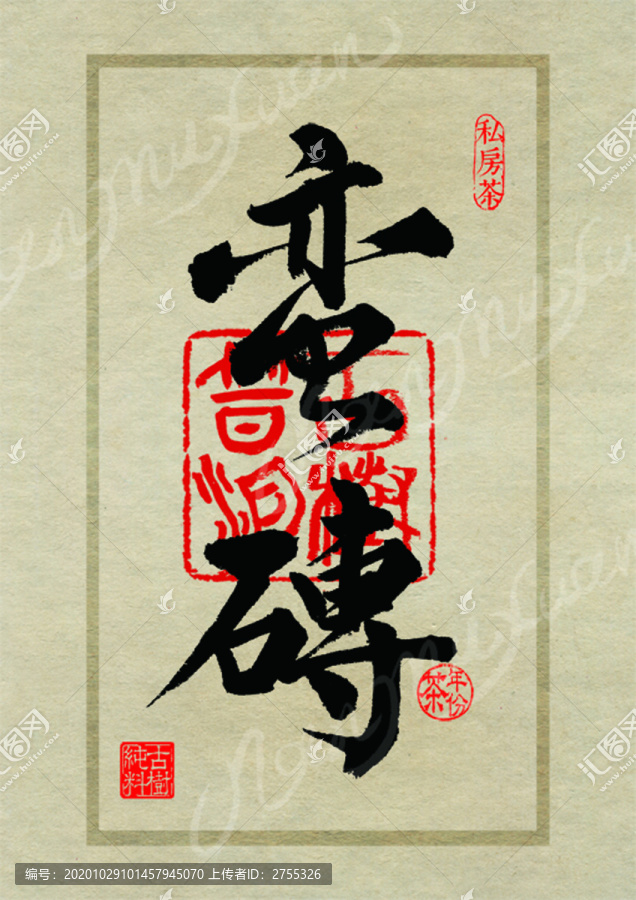 私房茶
蛮磚
古樹
普洱
年份茶
古樹
純料
汇图网
编号：20201029101457945070 上传者ID：2755326